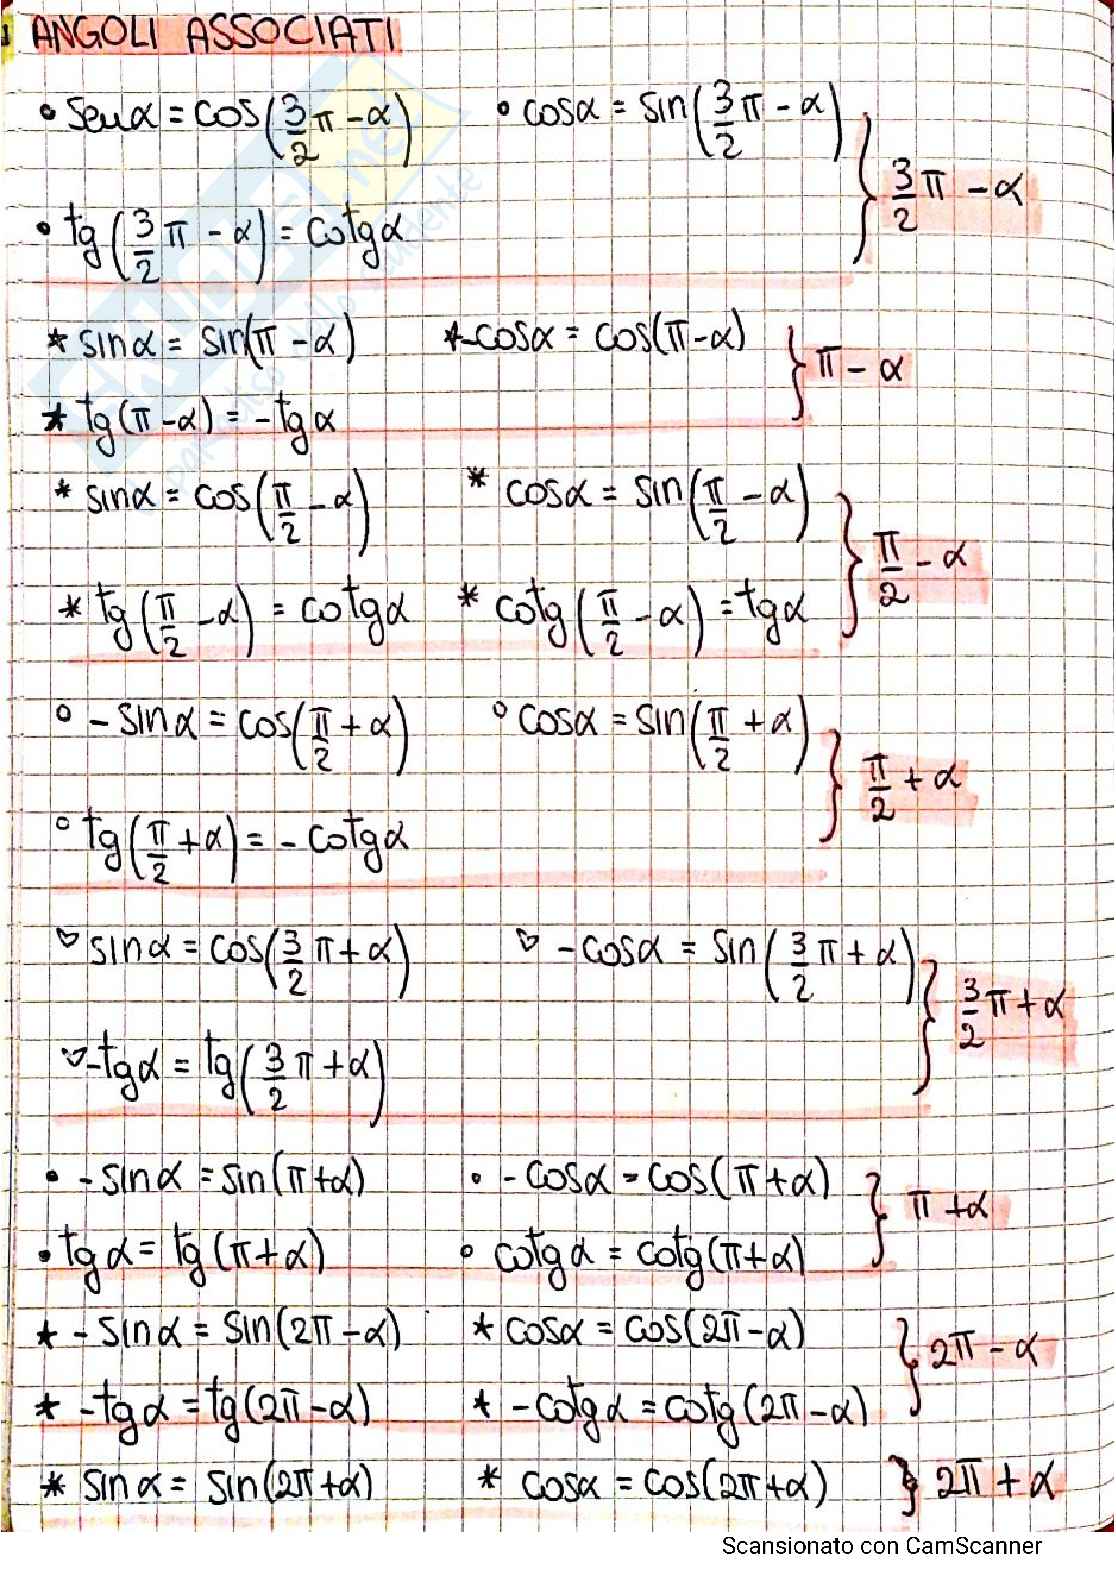 1 ANGOLI ASSOCIATI
• senα = cos(3/2 π - α) • cosα = sin(3/2 π - α)
3/2 π - α
• tg(3/2 π - α) = cotgα
* sinα = sin(π - α) * -cosα = cos(π-α)
π - α
* tg(π-α) = -tgα
* sinα = cos(π/2 - α) * cosα = sin(π/2 - α)
π/2 - α
* tg(π/2 - α) = cotgα * cotg(π/2 - α) = tgα
° -sinα = cos(π/2 + α) ° cosα = sin(π/2 + α)
π/2 + α
° tg(π/2 + α) = - cotgα
♡ sinα = cos(3/2 π + α) ♡ -cosα = sin(3/2 π + α)
3/2 π + α
♡ -tgα = tg(3/2 π + α)
• -sinα = sin(π+α) • -cosα = cos(π+α)
π + α
• tgα = tg(π+α) ° cotgα = cotg(π+α)
* -sinα = sin(2π-α) * cosα = cos(2π-α)
2π - α
* -tgα = tg(2π-α) * -cotgα = cotg(2π-α)
* sinα = sin(2π+α) * cosα = cos(2π+α) 2π + α
Scansionato con CamScanner